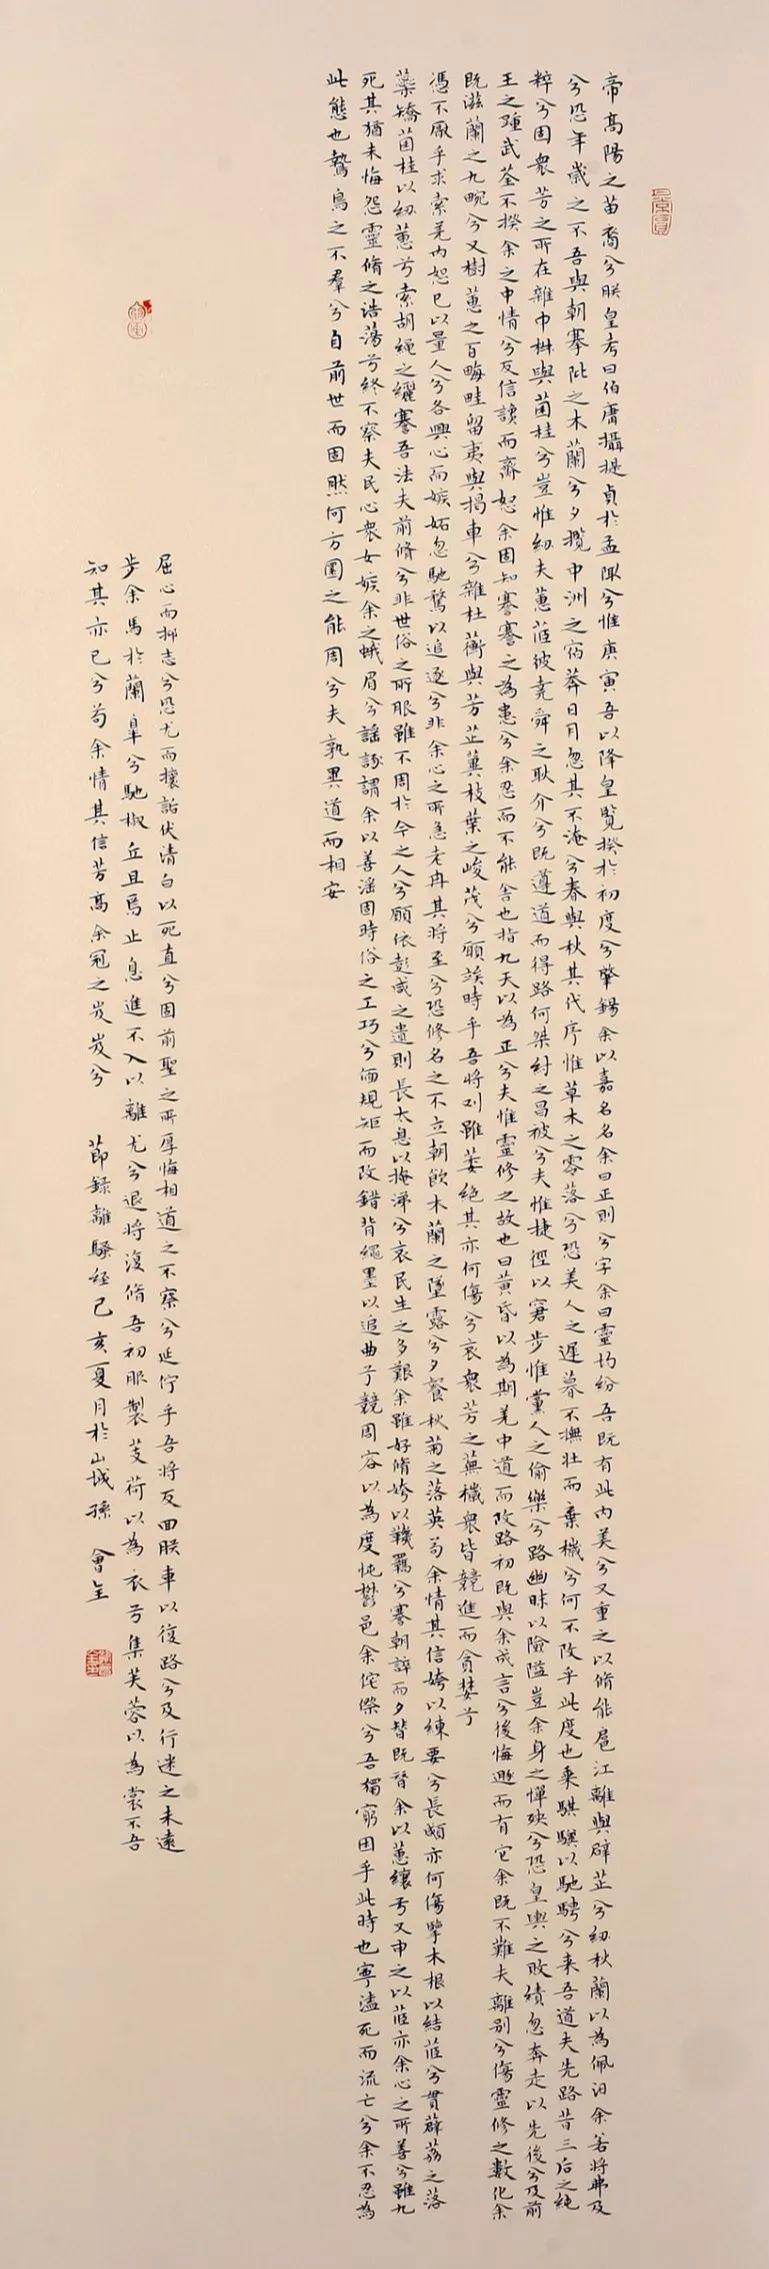 帝高陽之苗裔兮朕皇考曰伯庸攝提貞於孟陬兮惟庚寅吾以降皇覽揆於初度兮肇錫余以嘉名名余曰正則兮字余曰靈均紛吾既有此內美兮又重之以脩能扈江離與辟芷兮紉秋蘭以為佩汩余若將弗及
兮恐年歲之不吾與朝搴阰之木蘭兮夕攬中洲之宿莽日月忽其不淹兮春與秋其代序惟草木之零落兮恐美人之遲暮不撫壯而棄穢兮何不改乎此度也乘騏驥以馳騁兮来吾道夫先路昔三后之純
粹兮固衆芳之所在雜申椒與菌桂兮豈惟紉夫蕙茝彼堯舜之耿介兮既遵道而得路何桀紂之昌被兮夫惟捷徑以窘步惟黨人之偷樂兮路幽昧以險隘豈余身之憚殃兮恐皇輿之敗績忽奔走以先後兮及前
王之踵武荃不揆余之中情兮反信讒而齌怒余固知謇謇之為患兮余忍而不能舍也指九天以為正兮夫惟靈修之故也曰黃昏以為期羌中道而改路初既與余成言兮後悔遯而有它余既不難夫離別兮傷靈修之數化余
既滋蘭之九畹兮又樹蕙之百畮畦留夷與揭車兮雜杜蘅與芳芷冀枝葉之峻茂兮願竢時乎吾將刈雖萎絕其亦何傷兮哀衆芳之蕪穢衆皆競進而貪婪兮
憑不厭乎求索羌內恕己以量人兮各興心而嫉妬忽馳騖以追逐兮非余心之所急老冉其將至兮恐修名之不立朝飲木蘭之墜露兮夕餐秋菊之落英苟余情其信姱以練要兮長顑亦何傷擥木根以結茝兮貫薜荔之落
蘂矯菌桂以紉蕙兮索胡繩之纚謇吾法夫前脩兮非世俗之所服雖不周於今之人兮願依彭咸之遺則長太息以掩涕兮哀民生之多艱余雖好脩姱以鞿羈兮謇朝誶而夕替既替余以蕙纕兮又申之以茝亦余心之所善兮雖九
死其猶未悔怨靈脩之浩蕩兮終不察夫民心衆女嫉余之蛾眉兮謠諑謂余以善淫固時俗之工巧兮偭規矩而改錯背繩墨以追曲兮競周容以為度忳鬱邑余侘傺兮吾獨窮困乎此時也寧溘死而流亡兮余不忍為
此態也鷙鳥之不羣兮自前世而固然何方圜之能周兮夫孰異道而相安
屈心而抑志兮忍尤而攘詬伏清白以死直兮固前聖之所厚悔相道之不察兮延佇乎吾將反回朕車以復路兮及行迷之未遠
步余馬於蘭皐兮馳椒丘且焉止息進不入以離尤兮退將復脩吾初服製芰荷以為衣兮集芙蓉以為裳不吾
知其亦已兮苟余情其信芳高余冠之岌岌兮 節録離騷經己亥夏月於山城孫會全